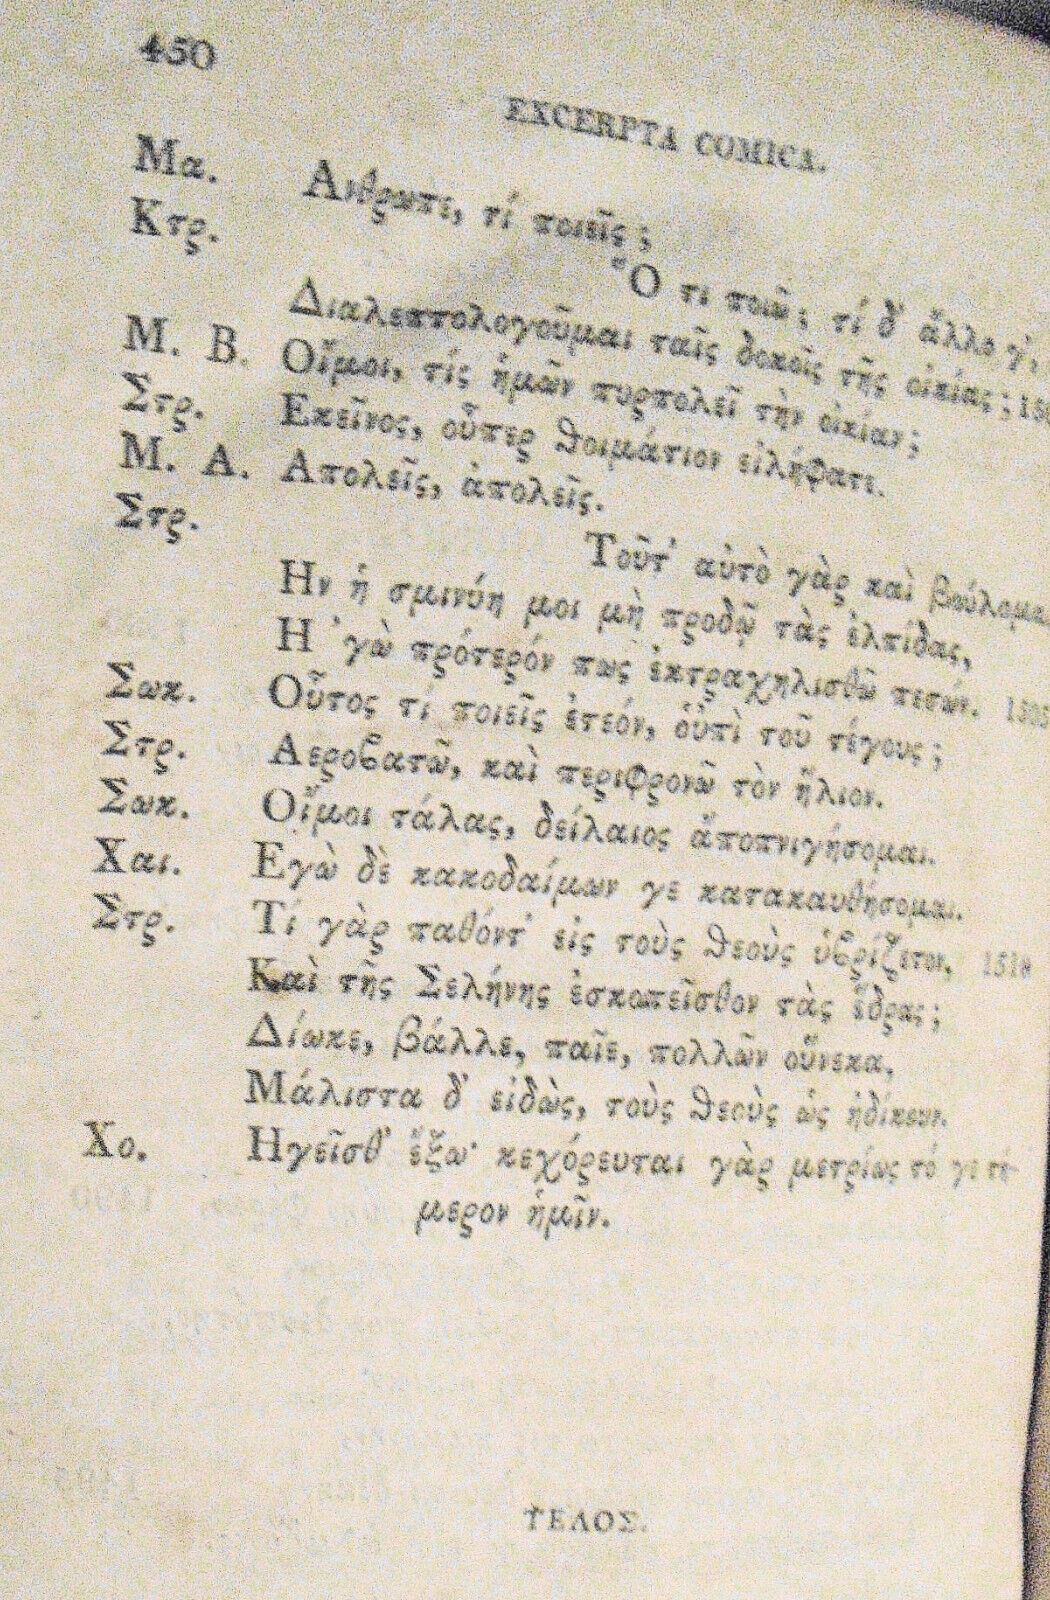 450
EXCERPTA COMICA.
Μα. Ανθρωπε, τί ποιεῖς;
Κτρ. Ὅ τι ποιῶ; τί δ' ἄλλο γ',
Διαλεπτολογοῦμαι ταῖς δοκοῖς τῆς οἰκίας;
Μ. Β. Οἴμοι, τίς ἡμῶν πυρπολεῖ τὴν οἰκίαν;
Στρ. Εκεῖνος, οὗπερ θοιμάτιον εἰλήφατε.
Μ. Α. Απολεῖς, ἀπολεῖς.
Στρ. Τοῦτ' αὐτὸ γὰρ καὶ
Ην ἡ σμινύη μοι μὴ προδῷ τὰς ἐλπίδας,
Η 'γὼ πρότερόν πως ἐκτραχηλισθῶ πεσών. 1505
Σωκ. Οὗτος τί ποιεῖς ἐτεόν, οὑπὶ τοῦ τέγους;
Στρ. Αεροϐατῶ, καὶ περιφρονῶ τὸν ἥλιον.
Σωκ. Οἴμοι τάλας, δείλαιος ἀποπνιγήσομαι.
Χαι. Εγὼ δὲ κακοδαίμων γε κατακαυθήσομαι.
Στρ. Τί γὰρ παθόντ' εἰς τοὺς θεοὺς ὑϐρίζετον, 1510
Καὶ τῆς Σελήνης ἐσκοπεῖσθον τὰς ἕδρας;
Δίωκε, βάλλε, παῖε, πολλῶν οὕνεκα,
Μάλιστα δ' εἰδὼς, τοὺς θεοὺς ὡς ἠδίκουν.
Χο. Ηγεῖσθ' ἔξω· κεχόρευται γὰρ μετρίως τό γε τή-
μερον ἡμῖν.
ΤΕΛΟΣ.